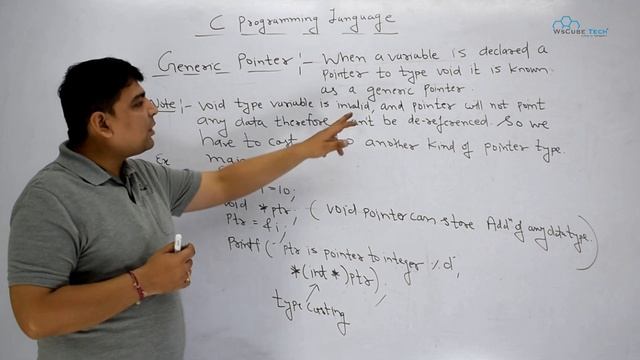 C Programming Language
WsCube Tech
Generic Pointer :- When a variable is declared a
pointer to type void it is known
as a generic pointer.
Note :- Void type variable is invalid, and pointer will not point
any data therefore be de-referenced. So we
have to cast another kind of pointer type.
Ex main
=10;
void *ptr; (Void pointer can store Add" of any data type.)
Ptr = &i;
Printf ("Ptr is pointer to integer %d",
*(int *)ptr);
type casting